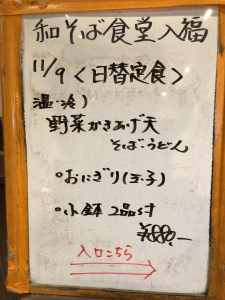 和そば食堂入福
11/9<日替定食>
温・冷)
野菜かきあげ天
そば・うどん
○おにぎり(玉子)
○小鉢 2品付
¥880.-
入口こちら